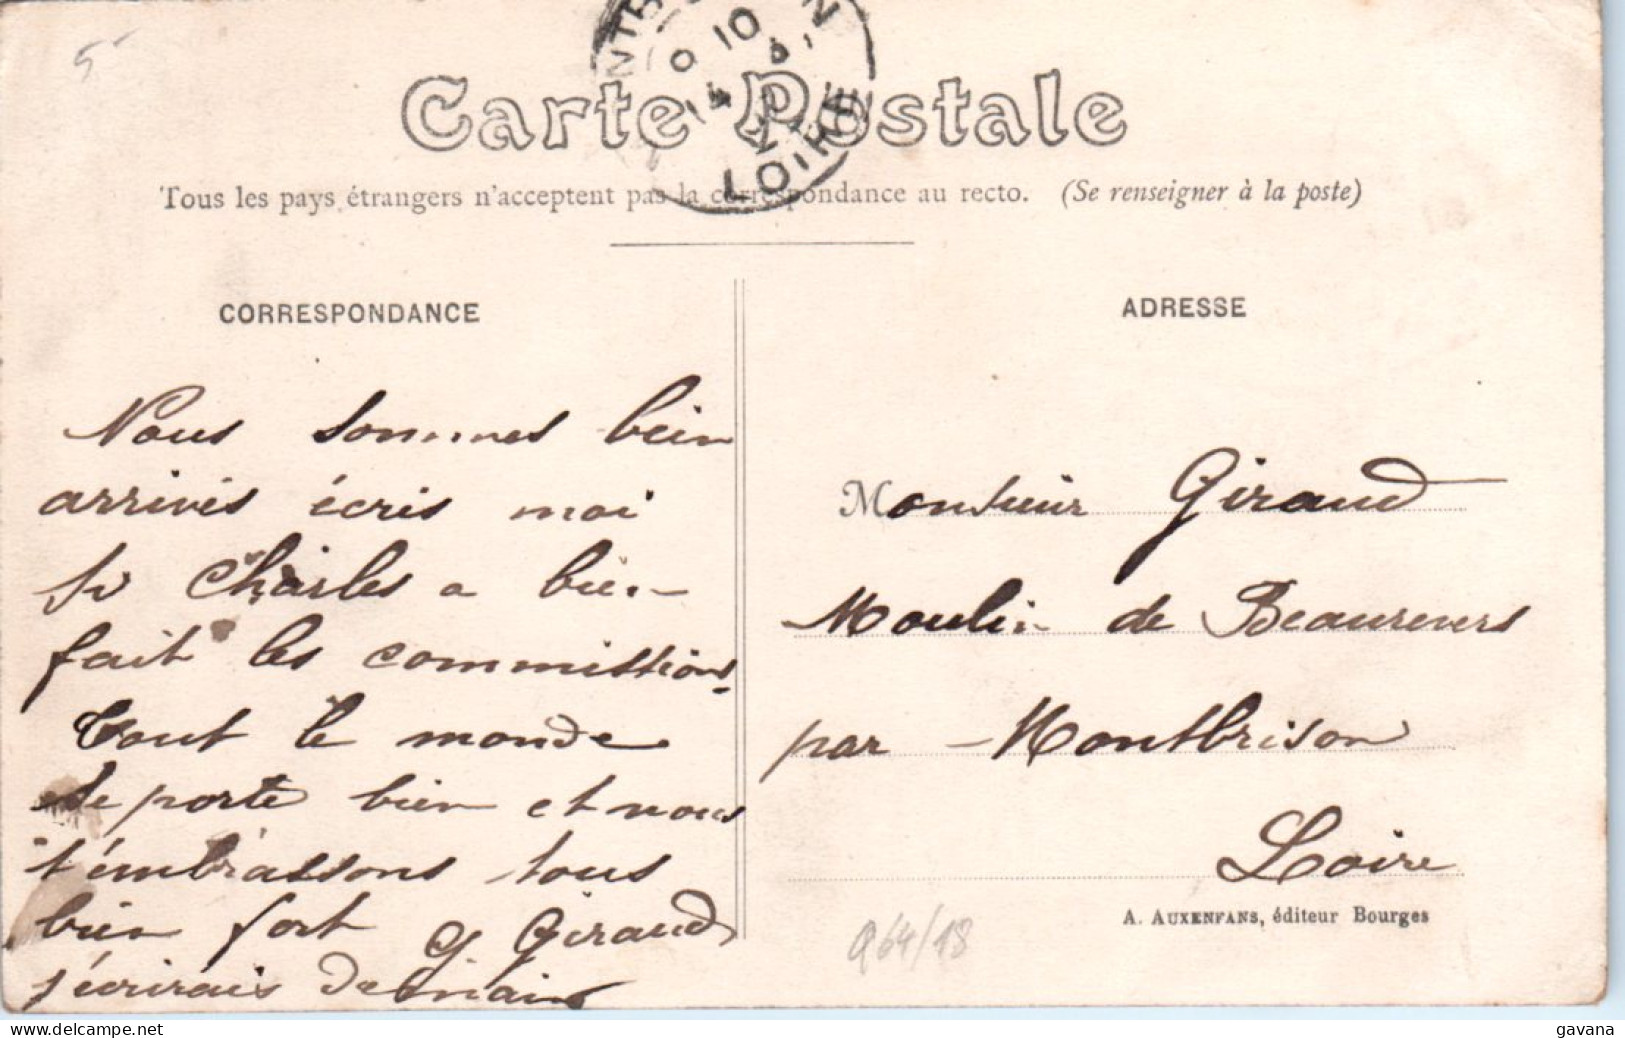 5
LOIRE
Carte Postale
Tous les pays étrangers n'acceptent pas la correspondance au recto. (Se renseigner à la poste)
CORRESPONDANCE
ADRESSE
Nous sommes bien
arrivés écris moi
si Charles a bien
fait les commissions.
tout le monde
se porte bien et nous
t'embrassons tous
bien fort G Giraud
j'écrirais demain
Monsieur Giraud
Moulin de Beaurevers
par Montbrison
Loire
A. AUXENFANS, éditeur Bourges
964/18
delcampe.net
gavana